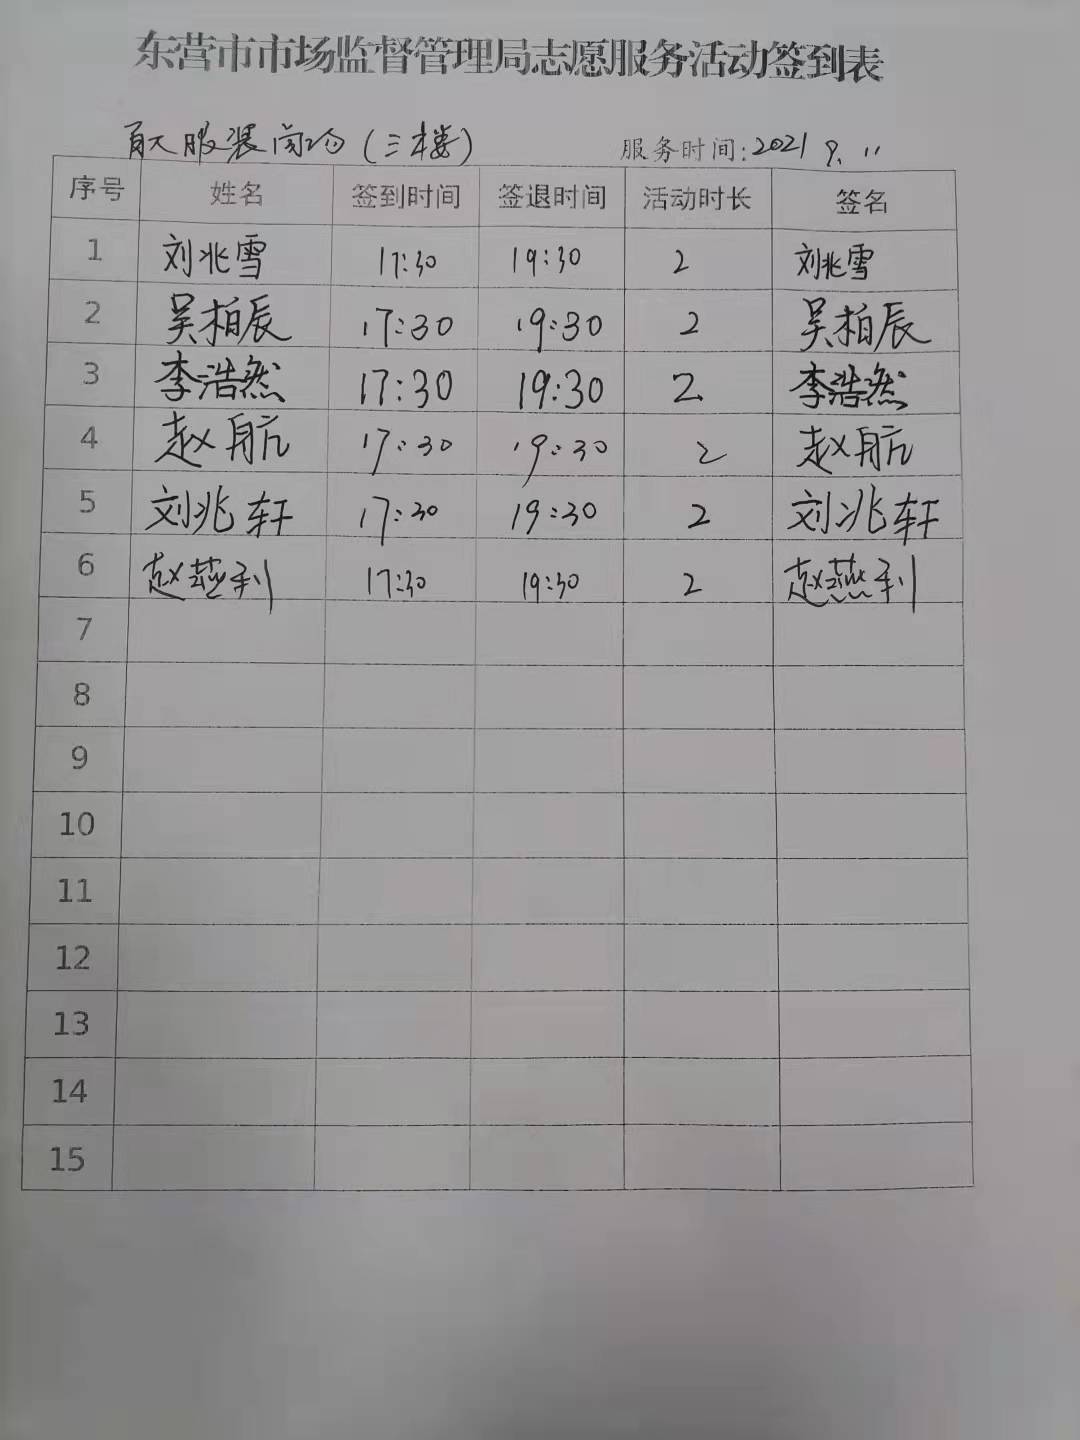 东营市市场监督管理局志愿服务活动签到表
服装商场(三楼) 服务时间:2021 9. 11
序号 姓名 签到时间 签退时间 活动时长 签名
1 刘兆雪 17:30 19:30 2 刘兆雪
2 吴柏辰 17:30 19:30 2 吴柏辰
3 李浩然 17:30 19:30 2 李浩然
4 赵航 17:30 19:30 2 赵航
5 刘兆轩 17:30 19:30 2 刘兆轩
6 赵燕利 17:30 19:30 2 赵燕利
7
8
9
10
11
12
13
14
15